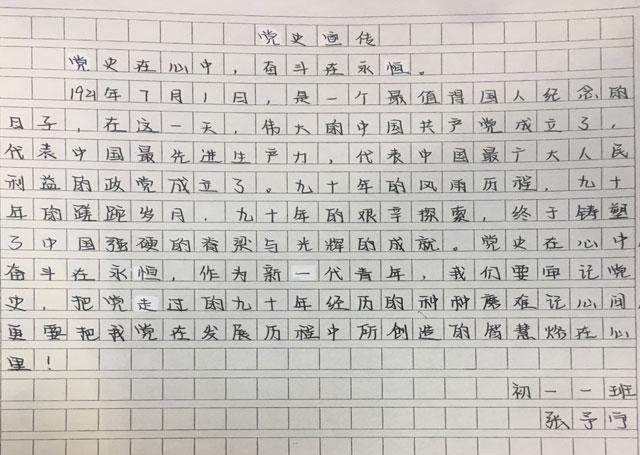 党史宣传
党史在心中，奋斗在永恒。
1921年7月1日，是一个最值得国人纪念的
日子，在这一天，伟大的中国共产党成立了，
代表中国最先进生产力，代表中国最广大人民
利益的政党成立了。九十年的风雨历程，九十
年的蹉跎岁月，九十年的艰辛探索，终于铸塑
了中国强硬的脊梁与光辉的成就。党史在心中，
奋斗在永恒，作为新一代青年，我们要审记党
史，把党走过的九十年经历的种种磨难记心间，
更要把我党在发展历程中所创造的智慧烙在心
里！
初一一班
张予宁